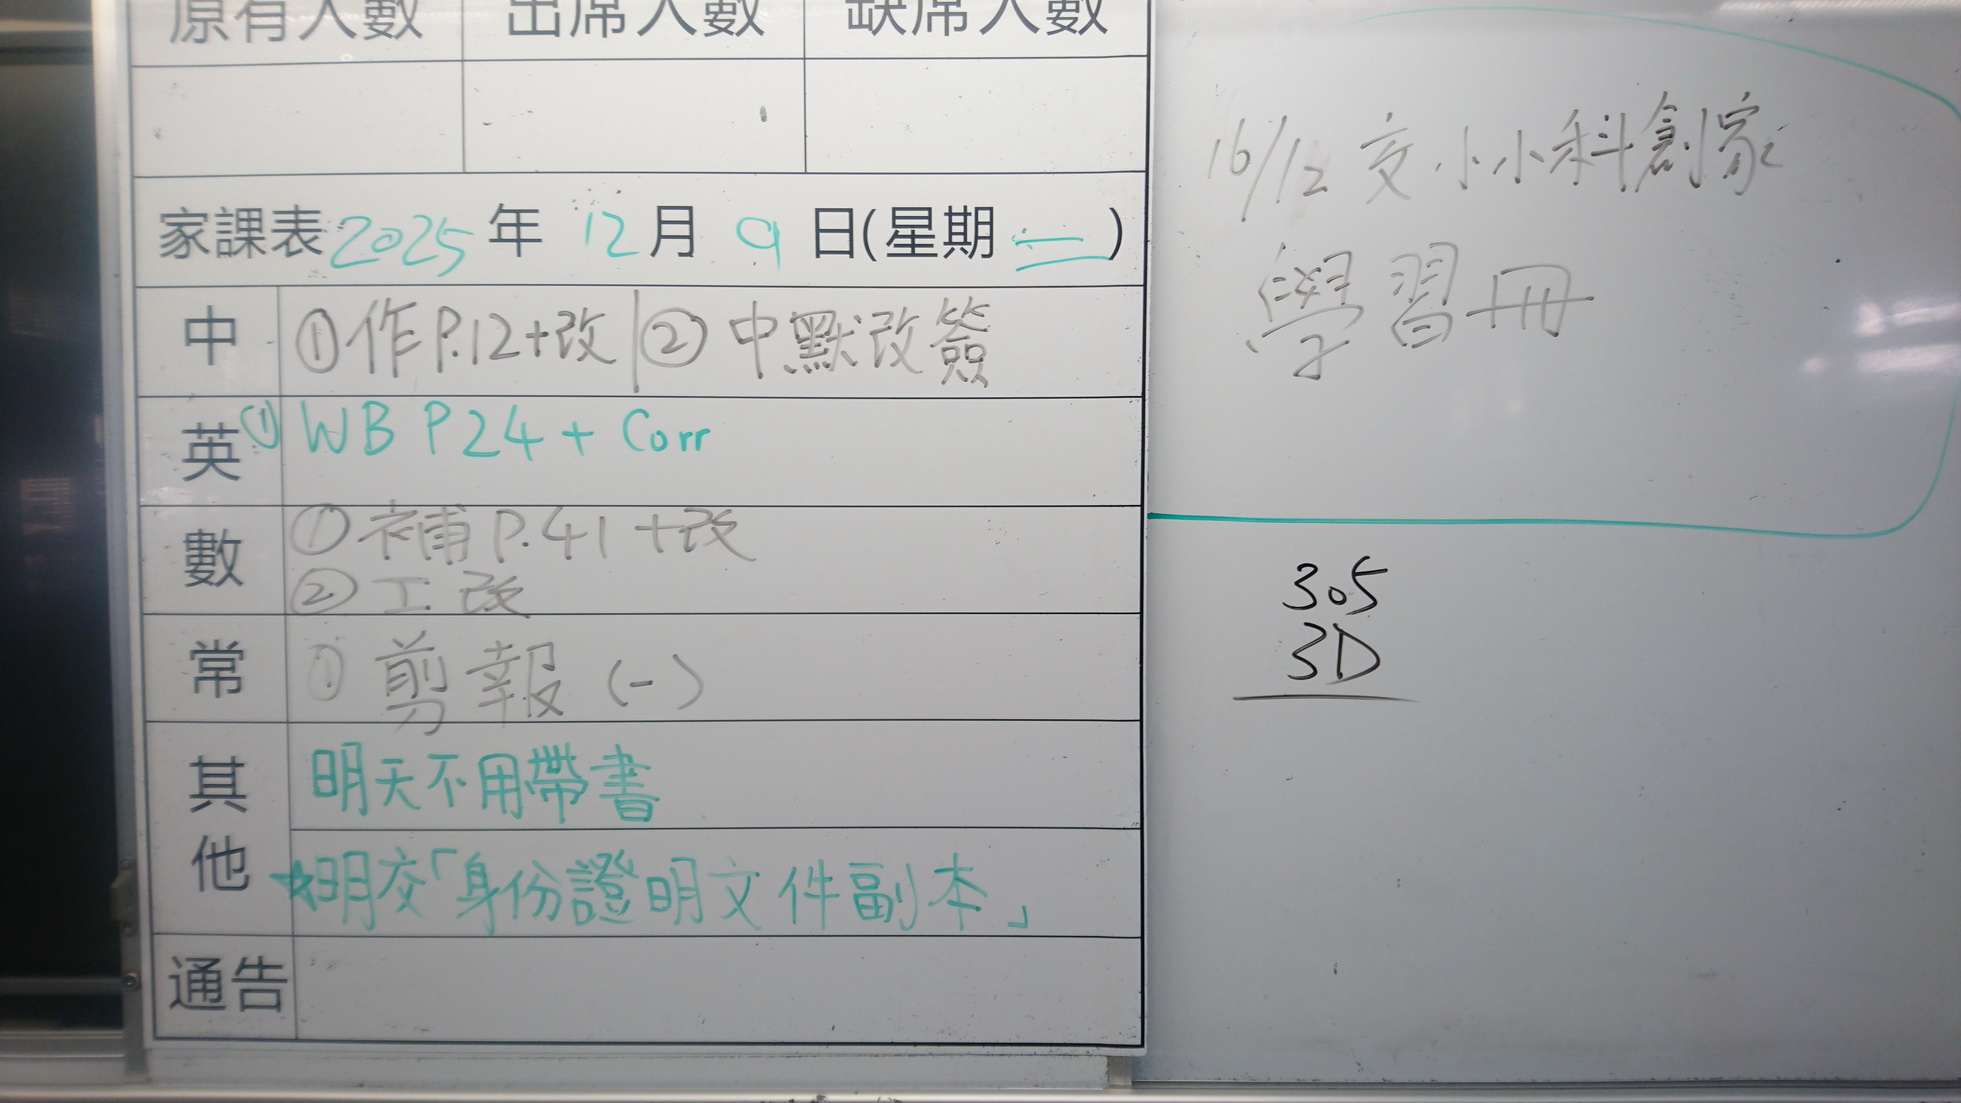 原有人數 出席人數 缺席人數
家課表2025年12月9日(星期二)
中 ①作P.12+改|②中默改簽
英 ① WB P24 + Corr
數 ①補P.41+改
②工改
常 ①剪報(一)
其他 明天不用帶書
★明交「身份證明文件副本」
通告
16/12 交小小科創家
學習冊
305
3D